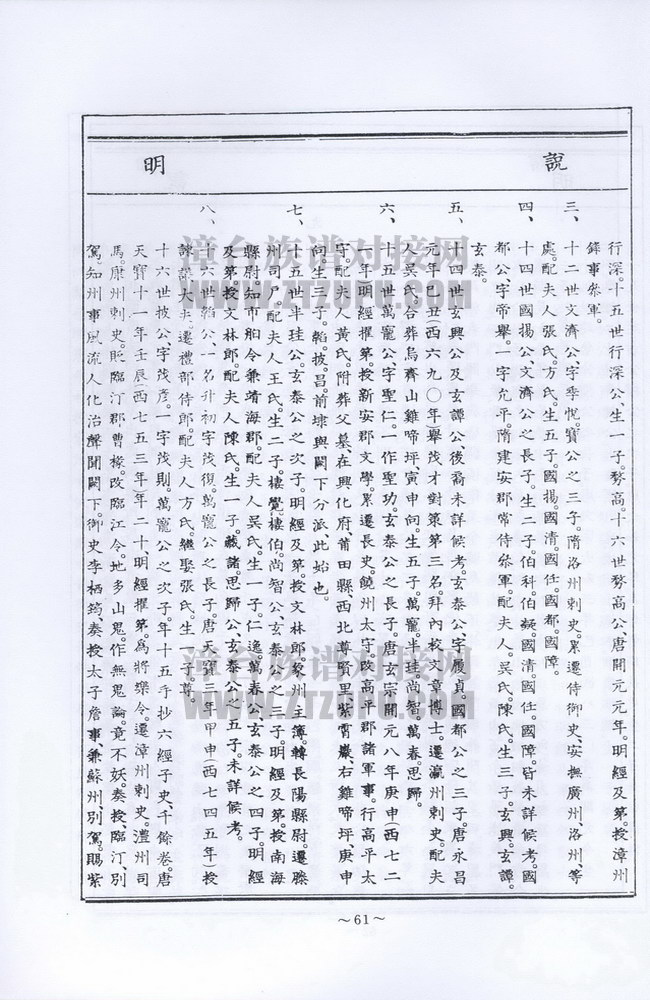 說明
行深。十五世行深公、生一子。務高。十六世務高公、唐開元元年。明經及第。授漳州
錄事叅軍。
三、十二世文濟公、字季悅。寶公之三子。隋洛州刺史。累遷侍御史、安撫廣州、洛州、等
處。配夫人張氏。方氏。生五子。國揚。國清。國任。國都。國障。
四、十四世國揚公、文濟公之長子。生二子。伯科。伯疑。國清。國任。國障。皆未詳候考。國
都公、字帝舉。一字允平。隋建安郡常侍叅軍。配夫人。吳氏。陳氏。生三子。玄興。玄譚。
玄泰。
五、十四世玄興公及玄譚公後裔未詳候考。玄泰公、字履貞。國都公之三子。唐永昌
元年己丑西六九〇年)舉茂才對策第三名。拜內校文章博士。遷瀛州刺史。配夫
人吳氏。合葬烏齊山雞啼坪、寅申向。生五子。萬寵。半珪。尚智。萬春。思歸。
六、十五世萬寵公、字聖仁。一作聖功。玄泰公之長子。唐玄宗開元八年庚申(西七二
一年明經擢第。授新安郡文學。累遷長史。饒州太守。改高平郡諸軍事。行高平太
守。配夫人黃氏。附葬父墓、在興化府、莆田縣、西北尊賢里紫霄巖、右雞啼坪、庚申
向。生三子。韜。披。昌。前埭與闕下分派、此始也。
七、十五世半珪公。玄泰公之次子。明經及第。授文林郎。泉州主簿。轉長陽縣尉。遷滕
州司戶。配夫人王氏。生二子。棲覺。棲伯。尚智公、玄泰公之三子。明經及第。授南海
縣尉。知市舶令兼靖海郡。配夫人吳氏。生一子。仁逸。萬春公、玄泰公之四子。明經
及第。授文林郎。配夫人陳氏。生一子。藏諸。思歸公、玄泰公之五子。未詳候考。
八、十六世韜公、一名升初。字茂復。萬寵公之長子。唐天寶三年甲申(西七四五年)授
諫議大夫。遷禮部侍郎。配夫人方氏。繼娶張氏。生一子尊。
十六世披公、字茂彥。一字茂則。萬寵公之次子。年十五手抄六經子史、千餘卷。唐
天寶十一年壬辰(西七五三年)年二十、明經擢第。為將樂令。遷漳州刺史。澧州司
馬。康州刺史。貶臨汀郡曹椽。改臨江令。地多山鬼。作無鬼論。竟不妖。奏授、臨汀、別
駕。知州事。風流人化治聲聞闕下。御史李栖筠、奏授太子詹事、兼蘇州、別駕。賜紫
漳台族谱对接网
www.ZTZUPU.com
漳台族谱对接网
www.ZTZUPU.com
～61～